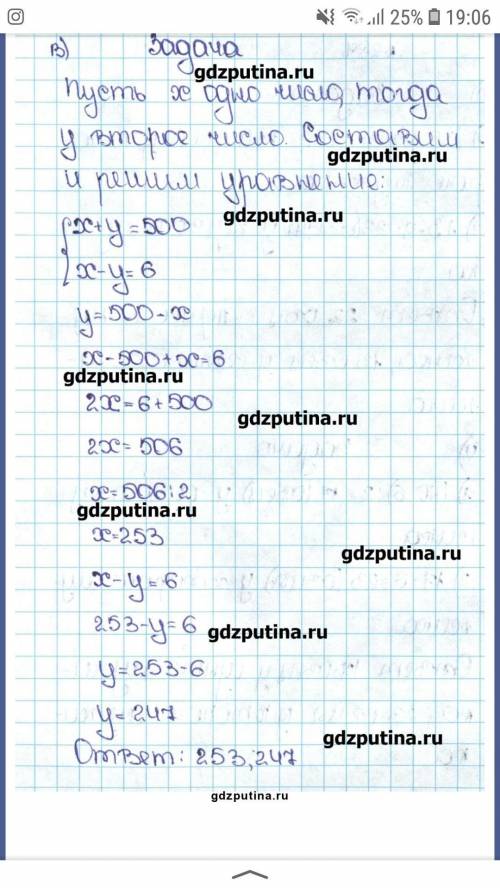 25% 19:06
в) Задача
gdzputina.ru
Пусть x одно число, тогда
y второе число. Составим
gdzputina.ru
и решим уравнение:
gdzputina.ru
x+y=500
x-y=6
y=500-x
x-500+x=6
gdzputina.ru
2x=6+500
gdzputina.ru
2x=506
x=506:2
gdzputina.ru
x=253
gdzputina.ru
x-y=6
253-y=6
gdzputina.ru
y=253-6
y=247
gdzputina.ru
Ответ: 253; 247
gdzputina.ru